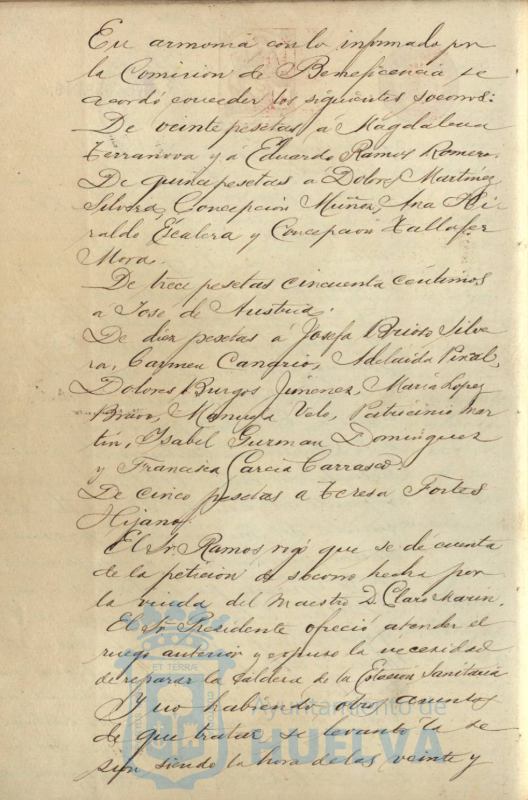 En armonia con lo informado por
la Comision de Beneficencia se
acordó conceder los siguientes socorros:
De veinte pesetas á Magdalena
Terranova y á Eduardo Ramos Romero.
De quince pesetas a Dolores Martinez
Silvera, Concepción Muñoz, Ana Hi-
raldo Escalera y Concepcion Tallafer
Mora.
De trece pesetas cincuenta centimos
a José de Austria.
De diez pesetas á Josefa Brioso Silve
ra, Carmen Canario, Adelaida
Dolores Burgos Jimenez, Maria Lopez
Bravo, Manuela Velo, Patrocinio Mar
tin, Isabel Guzman Dominguez
y Francisca Garcia Carrasco.
De cinco pesetas a Teresa Fortes
Hijano.
El Sr. Ramos rogó que se de cuenta
de la peticion de socorro hecha por
la viuda del Maestro D. Claro Marin.
El Sr. Presidente ofreció atender el
ruego anterior y expuso la necesidad
de reparar la caldera de la Estacion Sanitaria
Y no habiendo otro asuntos
de que tratar se levantó la se
sion siendo la hora de las veinte y
ET TERRÆ
Ayuntamiento de
HUELVA